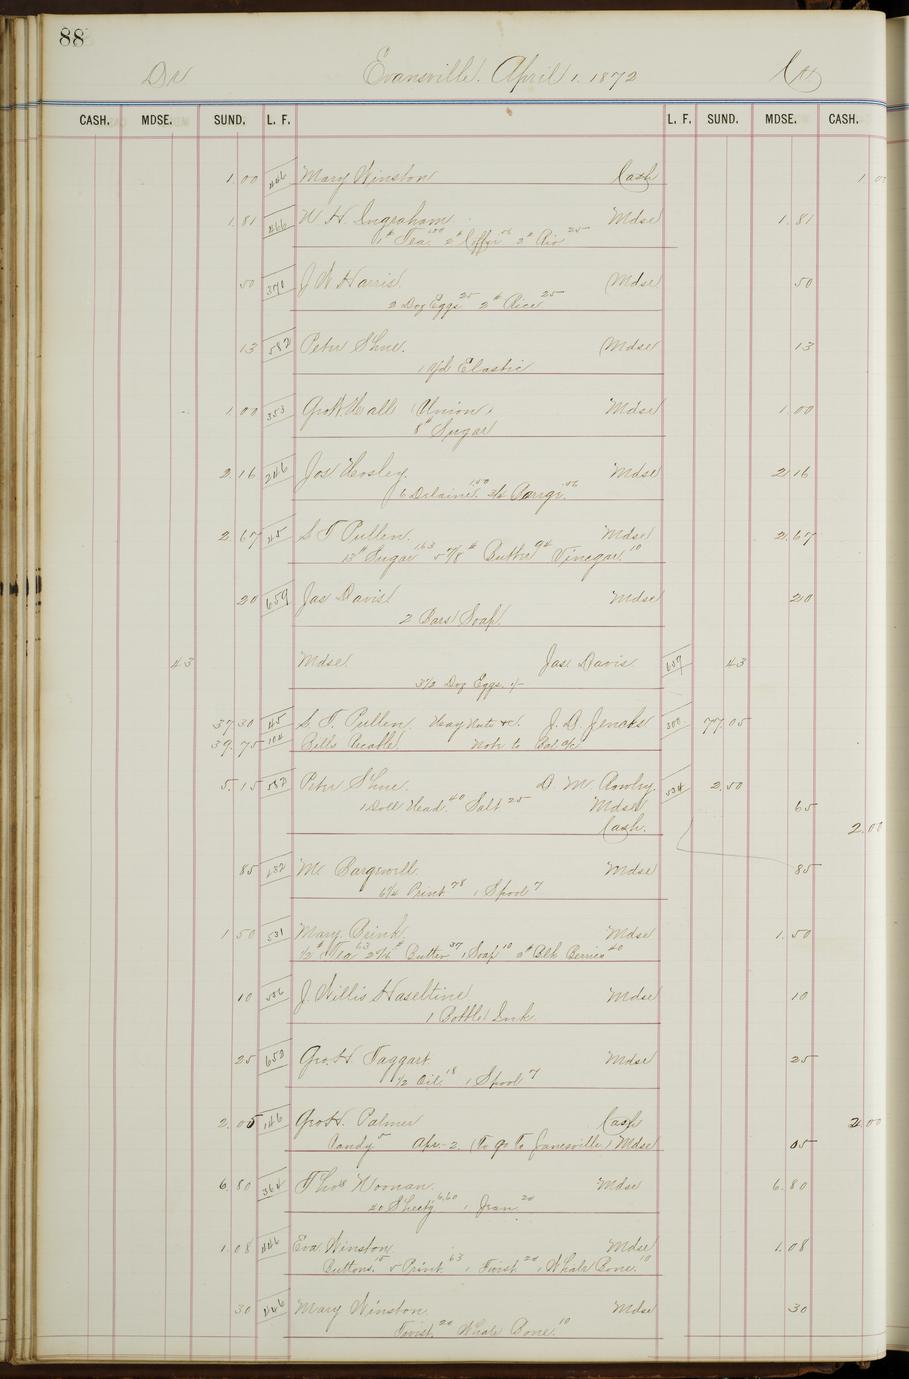 88
Dr Evansville. April 1. 1872 Cr
CASH. MDSE. SUND. L. F. L. F. SUND. MDSE. CASH.
1.00 446 Mary Winston Cash 1.00
1.81 466 W. H. Ingraham Mdse 1.81
1# Tea 1.00 2# Coffee 2# Rice 25
50 371 J W Harris Mdse 50
2 Doz Eggs 25 2# Rice 25
13 582 Peter Shue. Mdse 13
1 yd Elastic
1.00 353 Hall (Union) Mdse 1.00
8# Sugar
2.16 246 Jos Mdse 2.16
6 Delaine 3/4
2.67 45 S T Pullen. Mdse 2.67
13# Sugar 1.63 5 7/8# Butter 94 Vinegar 10
20 659 Jas Davis Mdse 20
2 Bars Soap
43 Mdse Jas Davis 659 43
3 1/2 Doz Eggs
37.30 45 S. T. Pullen Hay Note &c. J. D. Jencks 300 77.05
39.75 104 Bills Note to Bal a/c
5.15 582 Peter Shue. D. M. 534 2.50
1 Doll Head. 40 Salt 25 Mdse 65
Cash. 2.00
85 Mc Mdse 85
6 1/2 Print 78 1 Spool 7
1.50 531 Mary Brink. Mdse 1.50
1/2# Tea 63 Butter 37 1 Soap 10 2# Blk Berries 40
10 J. Willis Haseltine Mdse 10
1 Bottle Ink
25 652 Geo. H Taggart Mdse 25
1/2 Oil 18 1 Spool 7
2.05 146 Geo H. Palmer Cash 2.00
Candy 5 Apr-2. (To go to Janesville) Mdse 05
6.80 364 Thos Noonan. Mdse 6.80
20 Sheetg 6.60 1 20
1.08 446 Eva Winston Mdse 1.08
Buttons 15 5 Print 63 1 Twist 20 1 Whale Bone 10
30 446 Mary Winston Mdse 30
Twist 20 Whale Bone 10